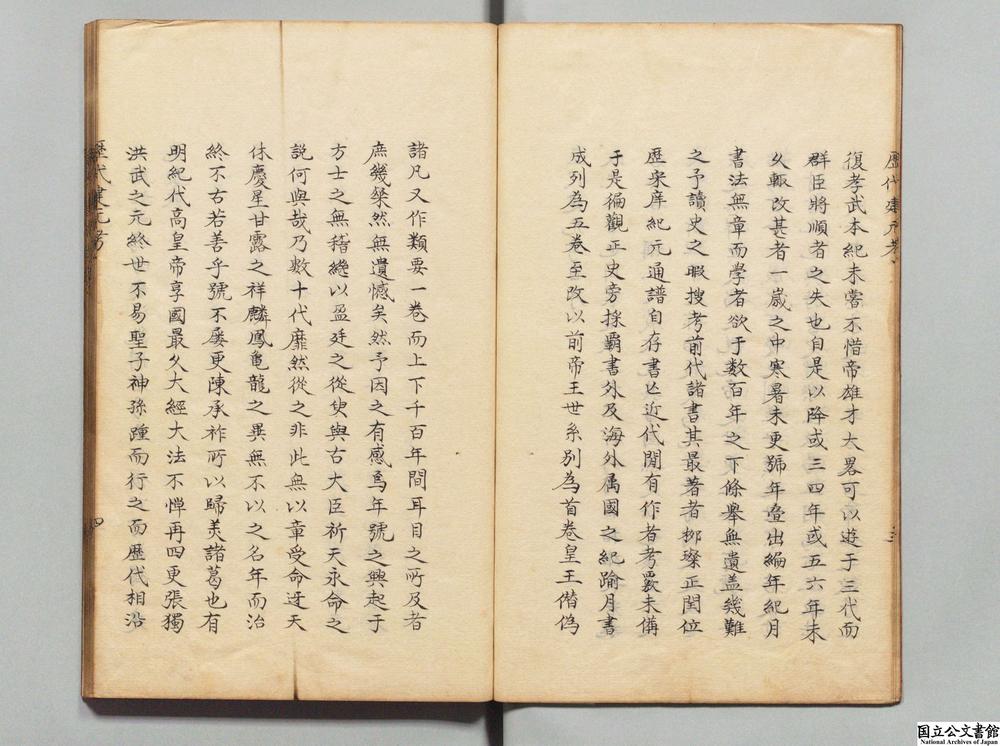 歴代建元考
復孝武本紀未嘗不惜帝雄才大畧可以遊于三代而
群臣將順者之失也自是以降或三四年或五六年未
久輙改甚者一嵗之中寒暑未更號年疊出編年紀月
書法無章而學者欲于数百年之下條舉無遺盖幾難
之予讀史之暇搜考前代諸書其最著者栁璨正閏位
歴宋庠紀元通譜自存書亡近代閒有作者考覈未備
于是徧觀正史旁採霸書外及海外属國之紀踰月書
成列為五巻至改以前帝王世系别為首巻皇王僣偽
三
諸凡又作類要一巻而上下千百年間耳目之所及者
庶幾粲然無遺憾矣然予因之有感焉年號之興起于
方士之無稽繼以盈廷之從臾與古大臣祈天永命之
說何與哉乃数十代靡然從之非此無以章受命迓天
休慶星甘露之祥麟鳳亀龍之異無不以之名年而治
終不古若善乎號不屡更陳承祚所以歸美諸葛也有
明紀代高皇帝享國最久大經大法不憚再四更張獨
洪武之元終世不易聖子神孫踵而行之而歴代相沿
歴代建元考
四
国立公文書館
National Archives of Japan